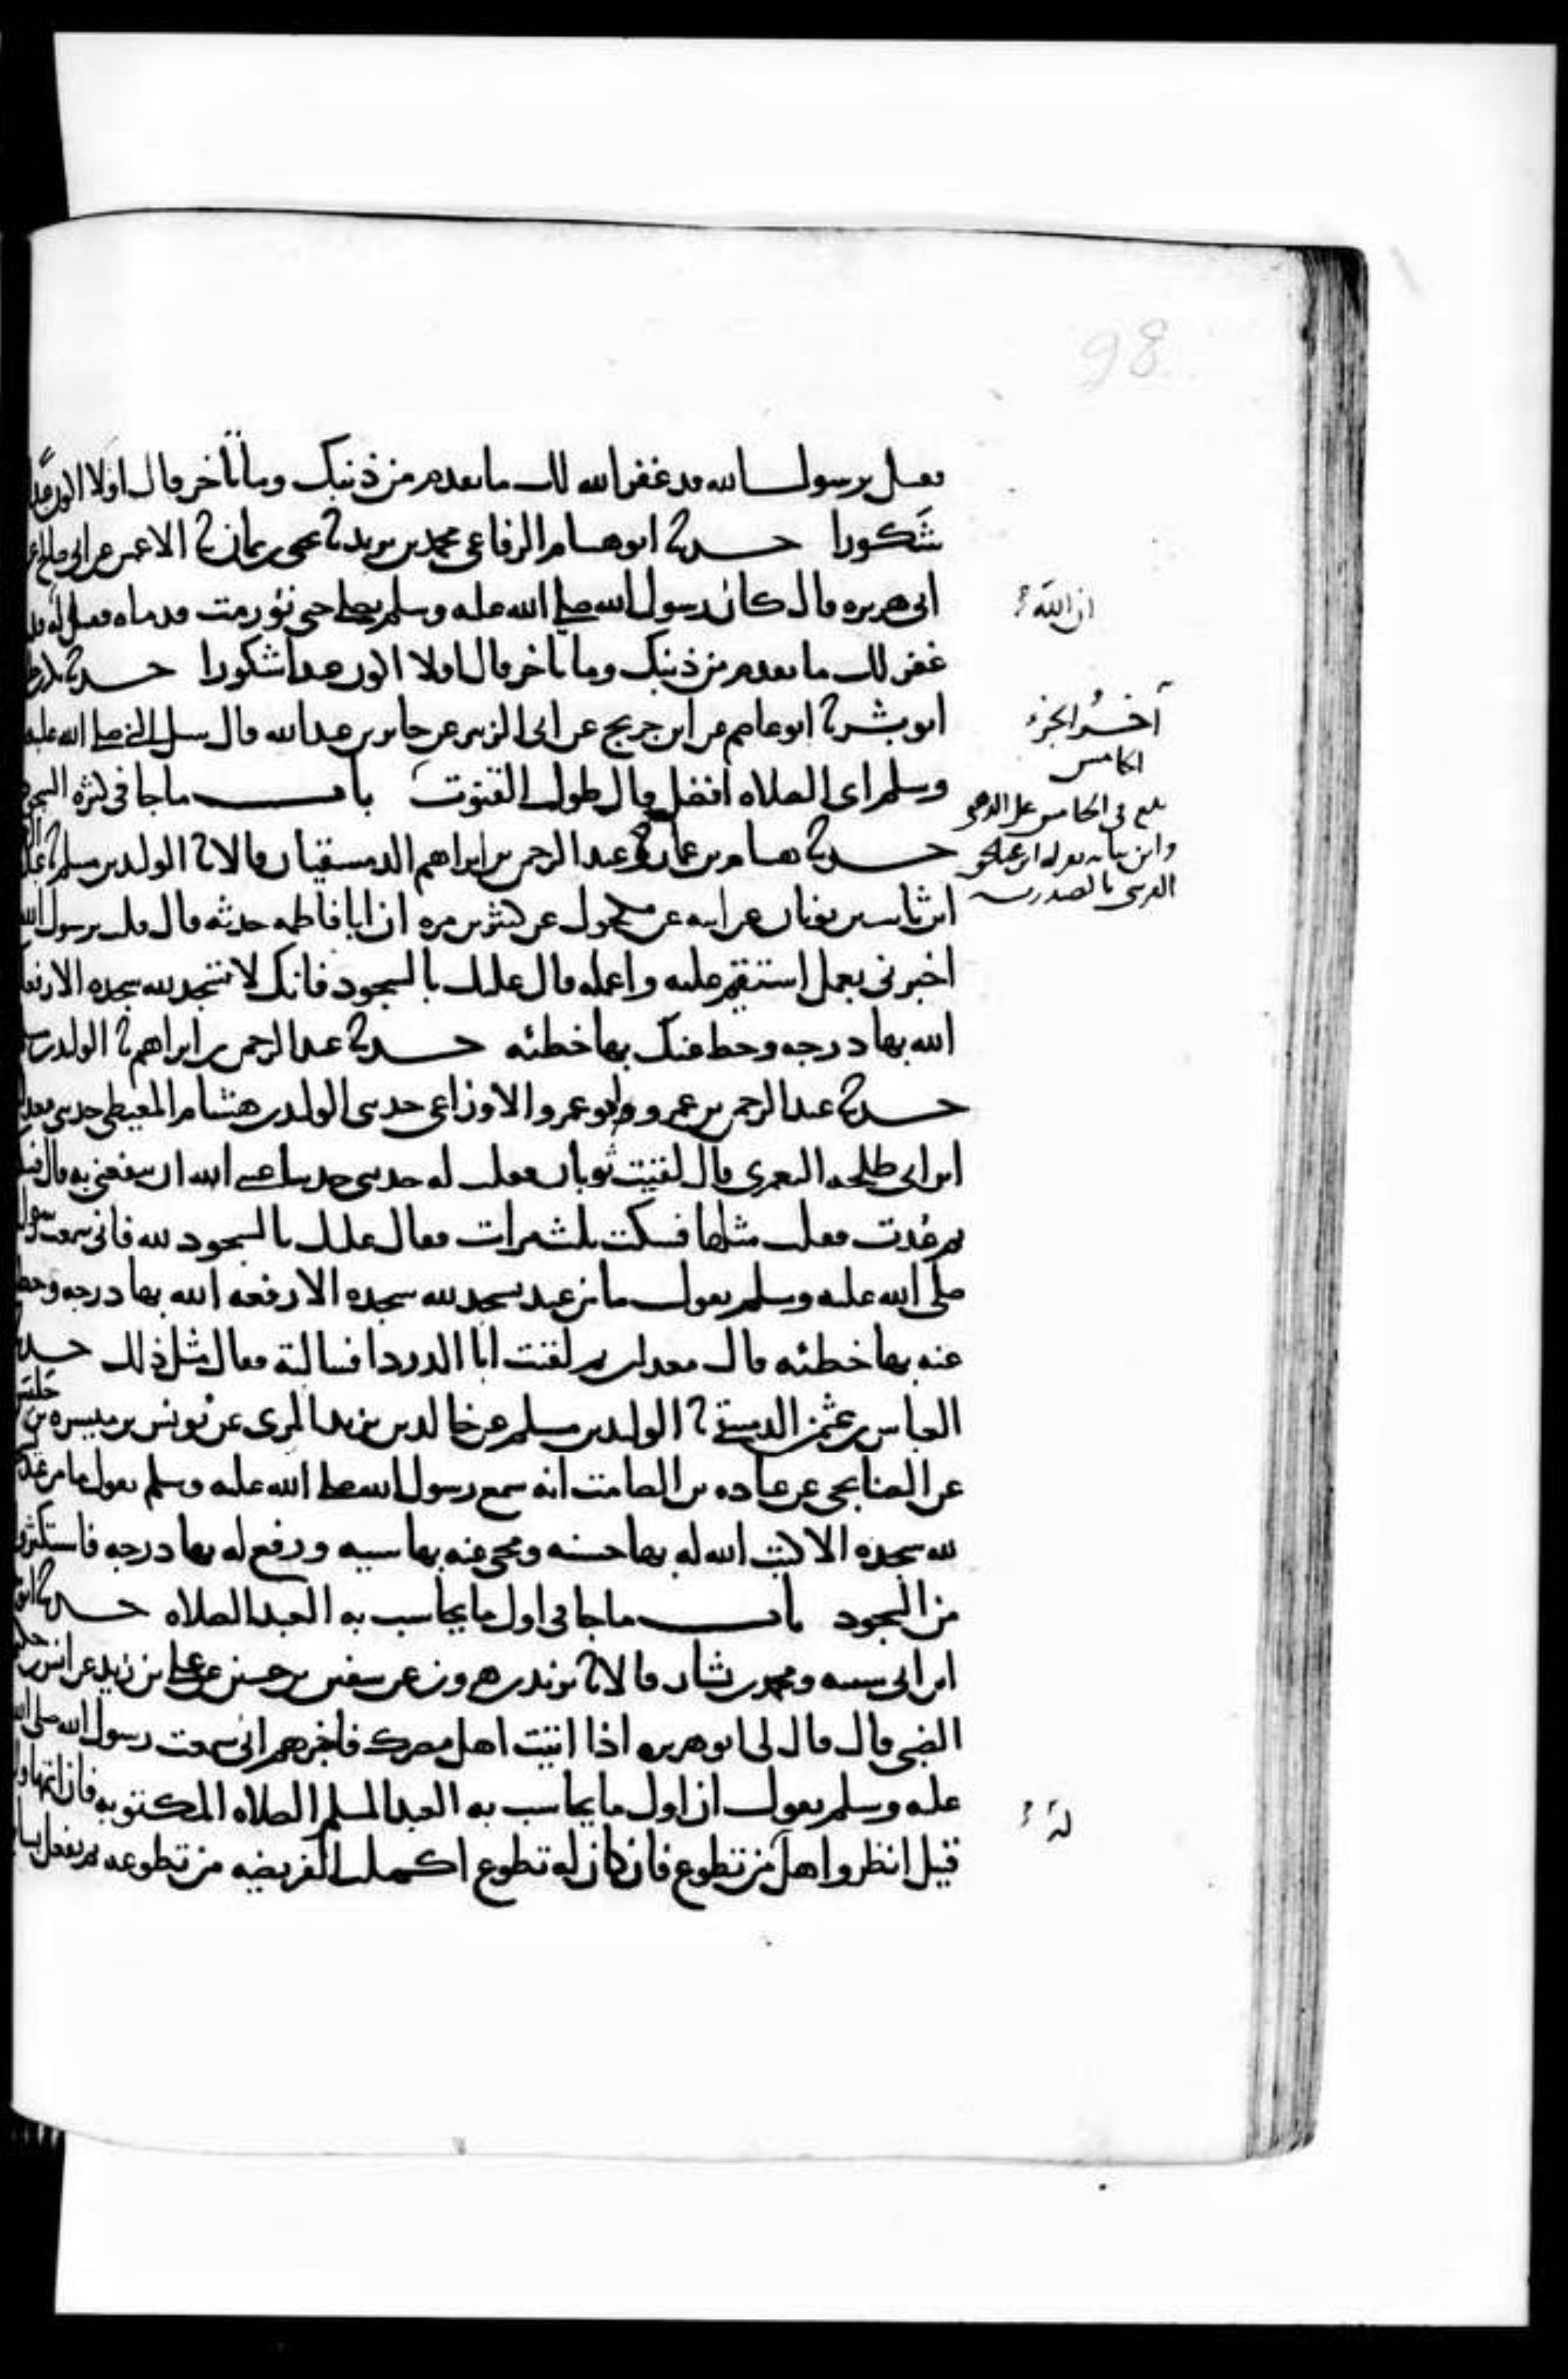 فقيل يرسول الله قد غفر الله لك ما تقدم من ذنبك وما تأخر قال افلا اكون عبدًا
شكورا حدثنا ابو هشام الرفاعي محمد بن يزيد ثنا يحيى بن يمان ثنا الاعمش عن ابي صالح عن
ابي هريره قال كان رسول الله صلى الله عليه وسلم يصلي حتى تورمت قدماه فقيل له قد
غفر لك ما تقدم من ذنبك وما تأخر قال افلا اكون عبدا شكورا حدثنا بكر بن خلف
ابو بشر ثنا ابو عاصم عن ابن جريج عن ابي الزبير عن جابر بن عبد الله قال سئل النبي صلى الله عليه
وسلم اي الصلاه افضل قال طول القنوت باب ما جا في كثره السجود
حدثنا هشام بن عمار وعبد الرحمن بن ابراهيم الدمشقيان قالا ثنا الوليد بن مسلم ثنا عبد الرحمن
ابن ثابت بن ثوبان عن ابيه عن مكحول عن كثير بن مره ان ابا فاطمه حدثه قال قلت يرسول الله
اخبرني بعمل استقيم عليه واعمله قال عليك بالسجود فانك لا تسجد لله سجده الا رفعك
الله بها درجه وحط عنك بها خطئه حدثنا عبد الرحمن بن ابراهيم ثنا الوليد بن مسلم
حدثنا عبد الرحمن بن عمرو ابو عمرو الاوزاعي حدثني الوليد بن هشام المعيطي حدثني معدان
ابن ابي طلحه اليعمري قال لقيت ثوبان فقلت له حدثني حديثا عسى الله ان ينفعني به قال فسكت
ثم عُدت فقلت مثلها فسكت ثلث مرات فقال عليك بالسجود لله فاني سمعت رسول الله
صلى الله عليه وسلم يقول ما من عبد يسجد لله سجده الا رفعه الله بها درجه وحط
عنه بها خطئه قال معدان ثم لقيت ابا الدردا فسالته فقال مثل ذلك حدثنا
العباس بن عثمن الدمشقي ثنا الوليد بن مسلم عن خالد بن يزيد المري عن يُونس بن ميسره بن حلبس
عن الصنابحي عن عباده بن الصامت انه سمع رسول الله صلى الله عليه وسلم يقول ما من عبد يسجد
لله سجده الا كتب الله له بها حسنه ومحى عنه بها سيه ورفع له بها درجه فاستكثروا
من السجود باب ما جا في اول ما يحاسب به العبد الصلاه حدثنا ابو بكر
ابن ابي شيبه ومحمد بن بشار قالا ثنا يزيد بن هرون عن سفين بن حسين عن علي بن زيد عن انس بن حكيم
الضبي قال قال لي ابو هريره اذا اتيت اهل مصرك فاخبرهم اني سمعت رسول الله صلى الله
عليه وسلم يقول ان اول ما يحاسب به العبد المسلم الصلاه المكتوبه فان اتمها والا
قيل انظروا هل من تطوع فان كان له تطوع اكملت الفريضه من تطوعه ثم يفعل بسائر
ان الله
آخر الجزء
الخامس
بلغ في الخامس على
له
98